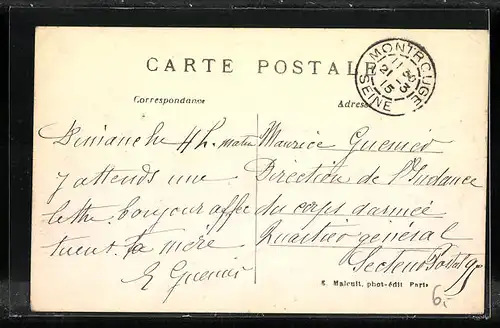 CARTE POSTALE
MONTROUGE
11 30
21 - 3
15
SEINE
Correspondance
Adresse
Dimanche 4 h. matin
j'attends une
lettre. bonjour affec
tueux. ta mère
Maurice
Direction de l'Intendance
du corps d'armée
Quartier général
Secteur Postal
E. Malcuit, phot-édit Paris
6.-